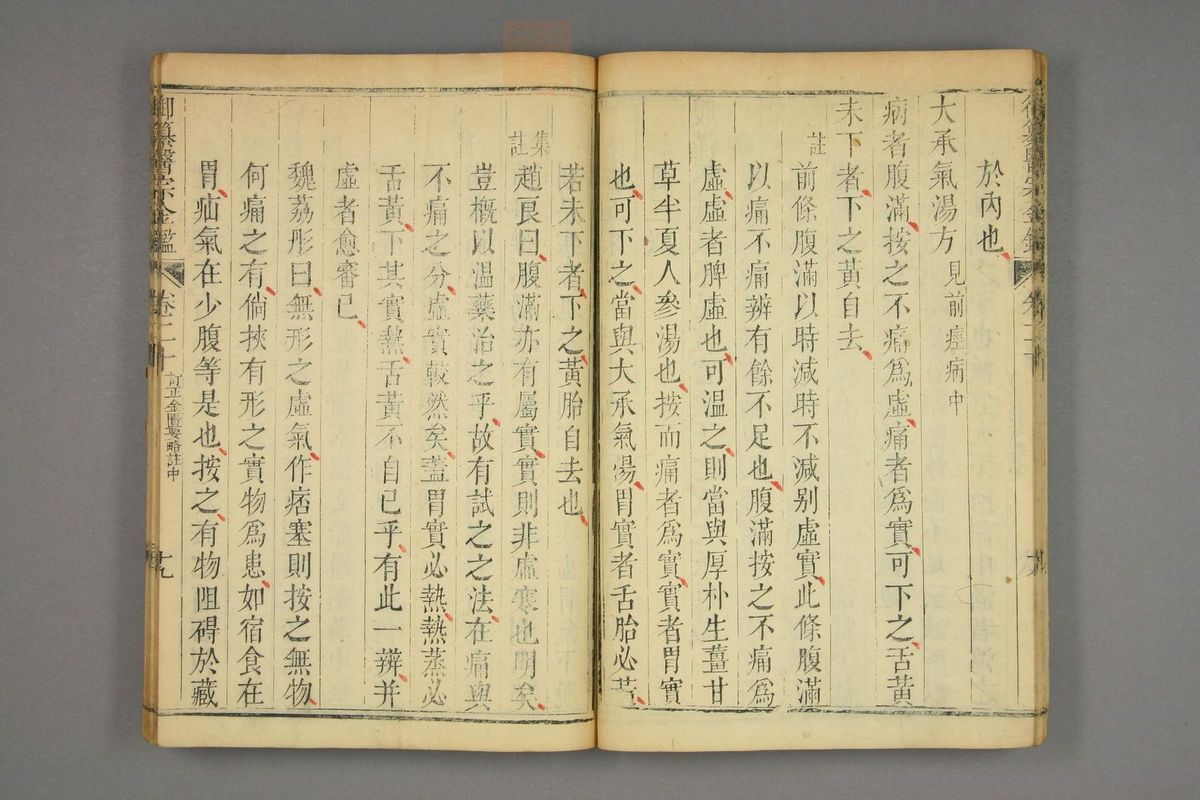 於內也
大承氣湯方見前痙病中
病者腹滿按之不痛爲虛痛者爲實可下之舌黃
未下者下之黃自去
註
前條腹滿以時減時不減别虛實此條腹滿
以痛不痛辨有餘不足也腹滿按之不痛爲
虛虛者脾虛也可溫之則當與厚朴生薑甘
草半夏人參湯也按而痛者爲實實者胃實
也可下之當與大承氣湯胃實者舌胎必黃
若未下者下之黃胎自去也
集註
趙良曰腹滿亦有屬實實則非虛寒也明矣
豈槪以溫藥治之乎故有試之之法在痛與
不痛之分虛實較然矣蓋胃實必熱熱蒸必
舌黃下其實熱舌黃不自已乎有此一辨并
虛者愈審已
魏荔彤曰無形之虛氣作痞塞則按之無物
何痛之有倘挾有形之實物爲患如宿食在
胃疝氣在少腹等是也按之有物阻碍於藏
御纂醫宗金鑑
卷二十
訂正金匱要略註中
十九